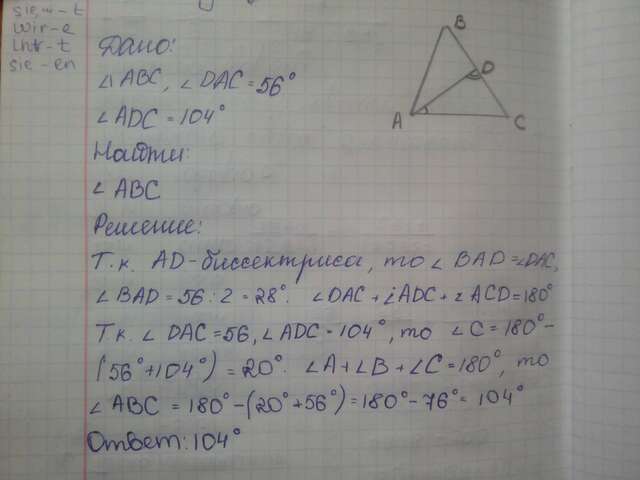 sie, w - t
wir - e
ihr - t
sie - en
Дано:
∠ ABC, ∠ DAC = 56°
∠ ADC = 104°
Найти:
∠ ABC
Решение:
Т.к. AD - биссектриса, то ∠ BAD = ∠DAC,
∠ BAD = 56 : 2 = 28°. ∠ DAC + ∠ADC + ∠ ACD = 180°
Т.к. ∠ DAC = 56, ∠ ADC = 104°, то ∠ C = 180° -
(56° + 104°) = 20°. ∠ A + ∠ B + ∠ C = 180°, то
∠ ABC = 180° - (20° + 56°) = 180° - 76° = 104°
Ответ: 104°
B
D
A
C